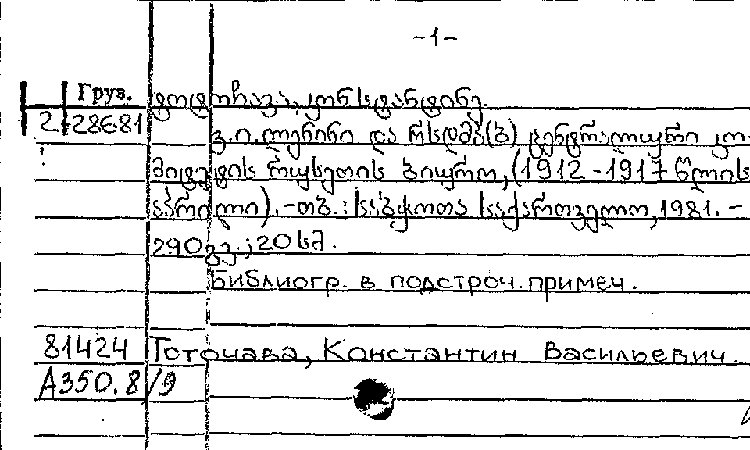 -1-
Груз. ტოტოჩავა, კონსტანტინე.
2-28681
ვ.ი.ლენინი და რსდმპ(ბ) ცენტრალური კო-
მიტეტის რუსეთის ბიურო, (1912-1917 წლის
აპრილი).-თბ.: საბჭოთა საქართველო, 1981.-
290გვ.; 20 სმ.
Библиогр. в подстроч. примеч.
81424 Тоточава, Константин Васильевич.
А350.8/9